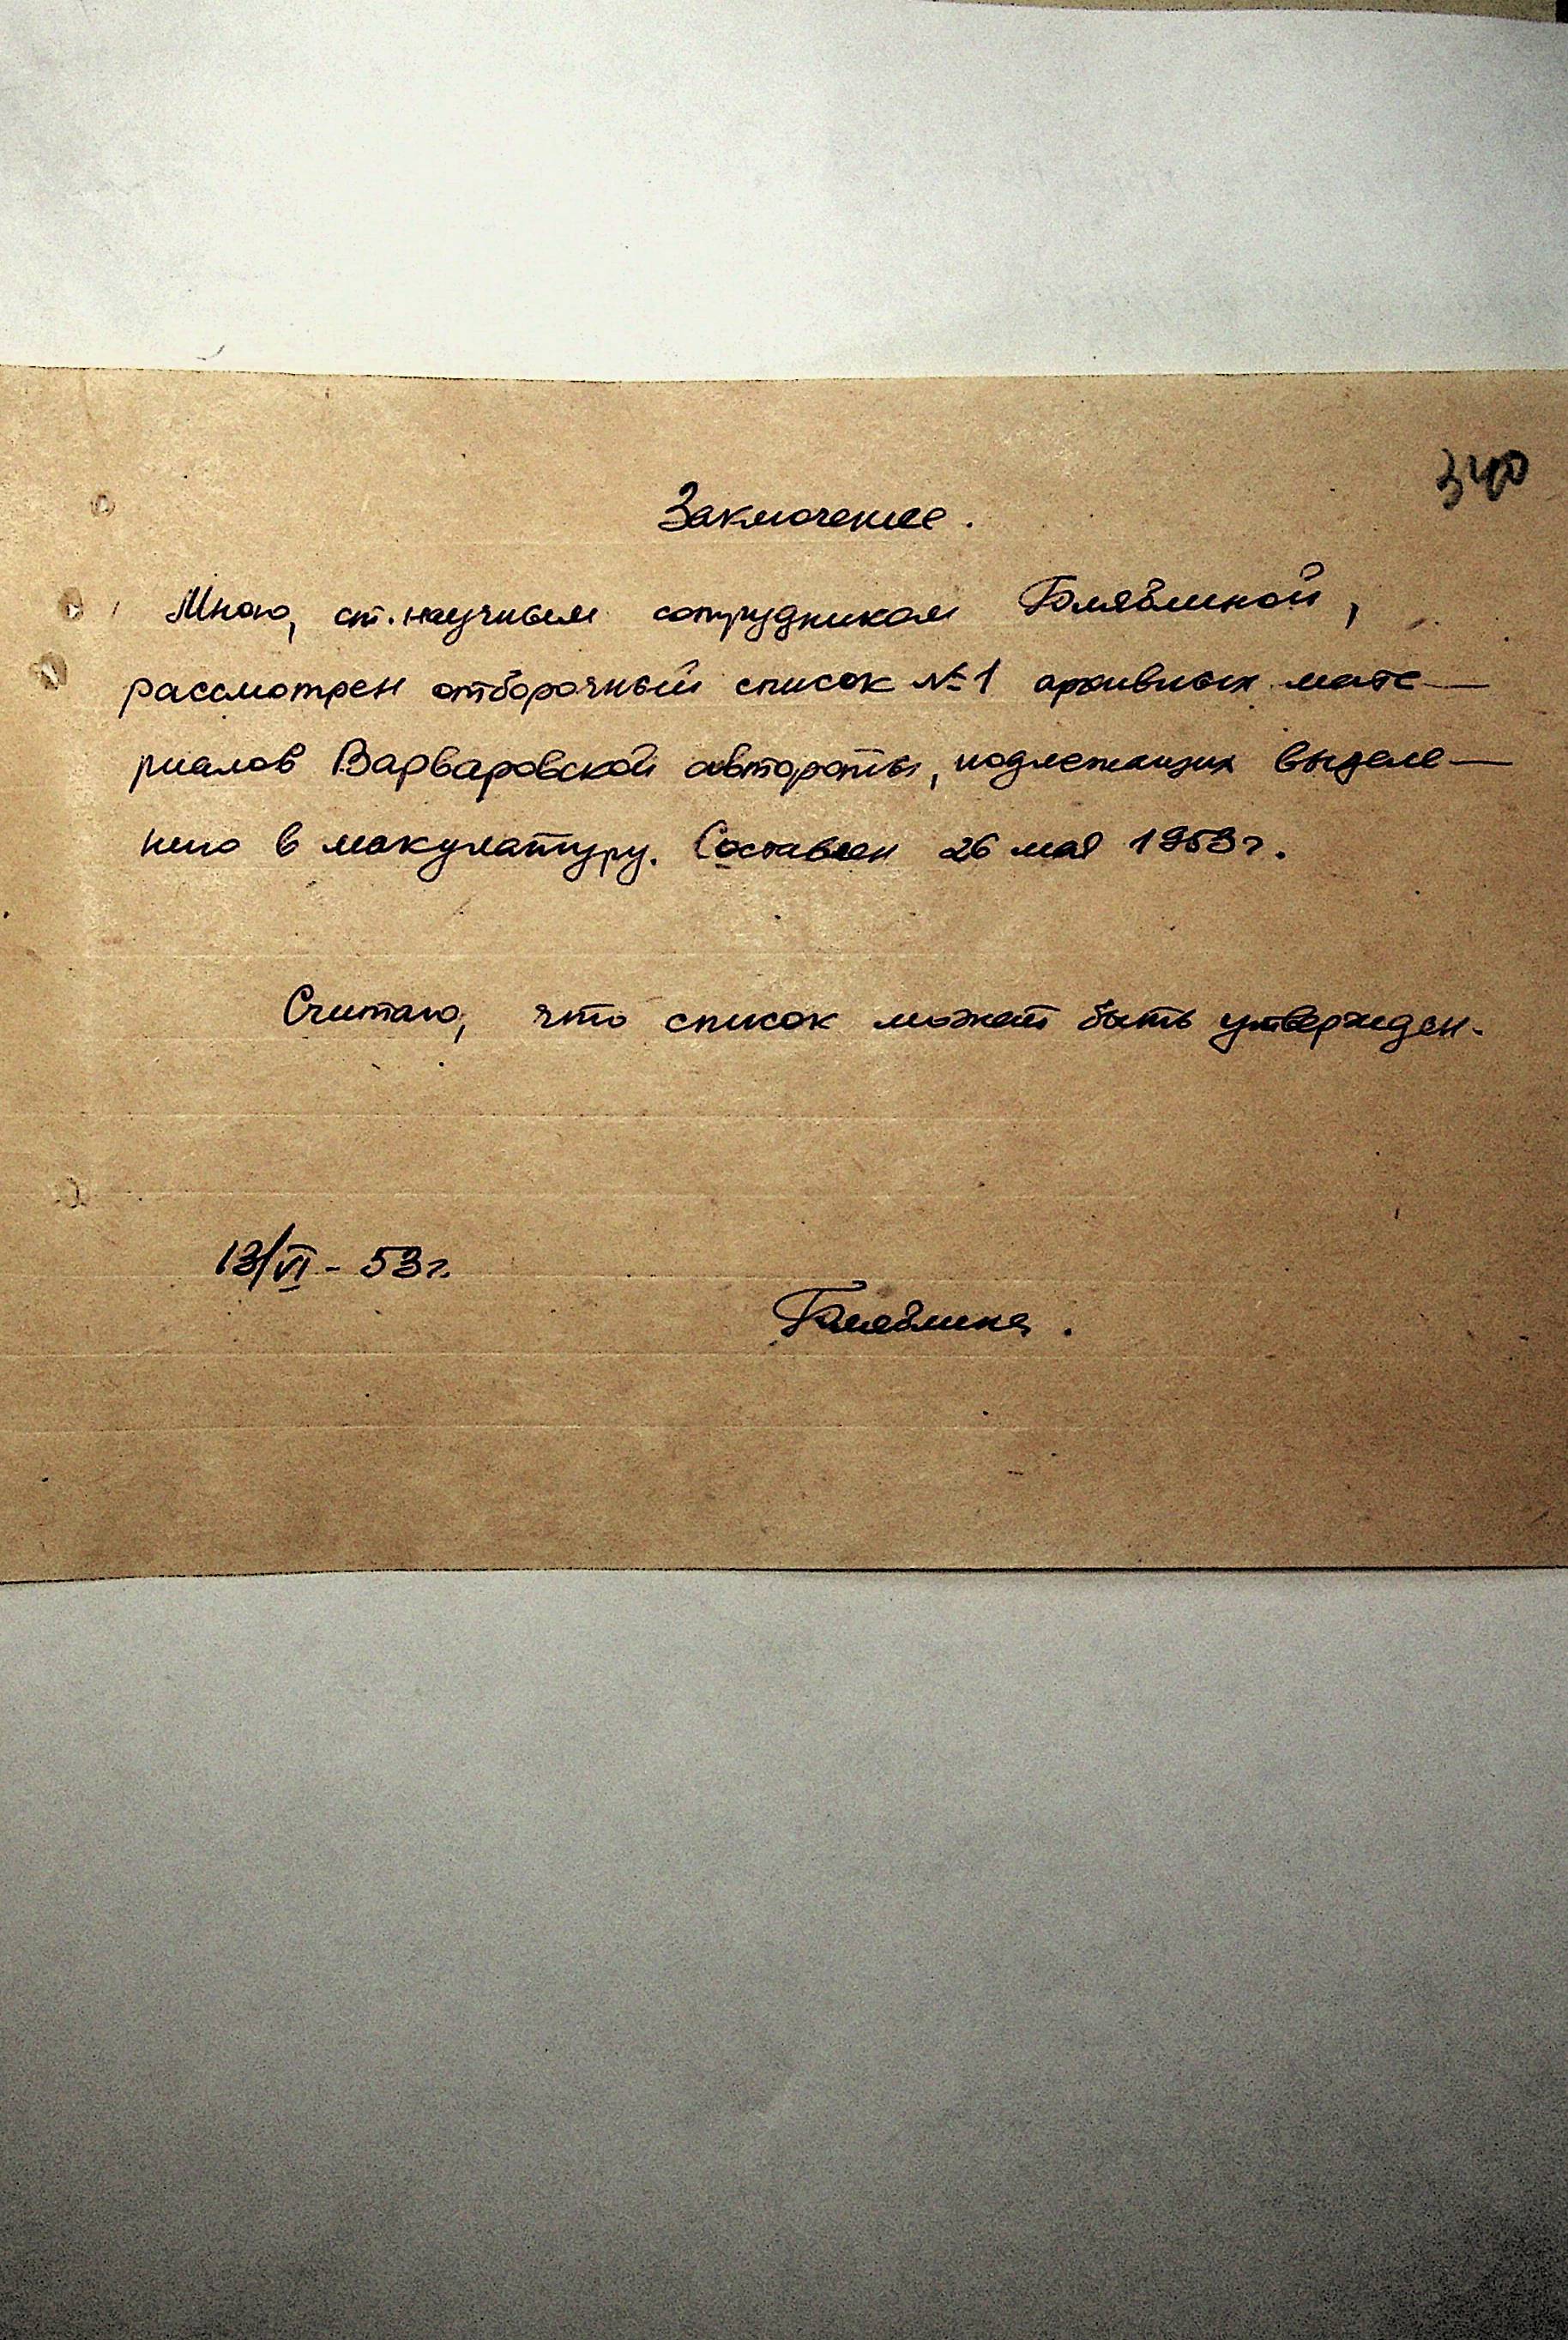 340
Заключение.
Мною, ст. научным сотрудником Голяблиной,
рассмотрен отборочный список №1 архивных мате-
риалов Варваровской автороты, подлежащих выделе-
нию в макулатуру. Составлен 26 мая 1953г.
Считаю, что список может быть утвержден.
13/VI - 53г.
Голяблина.